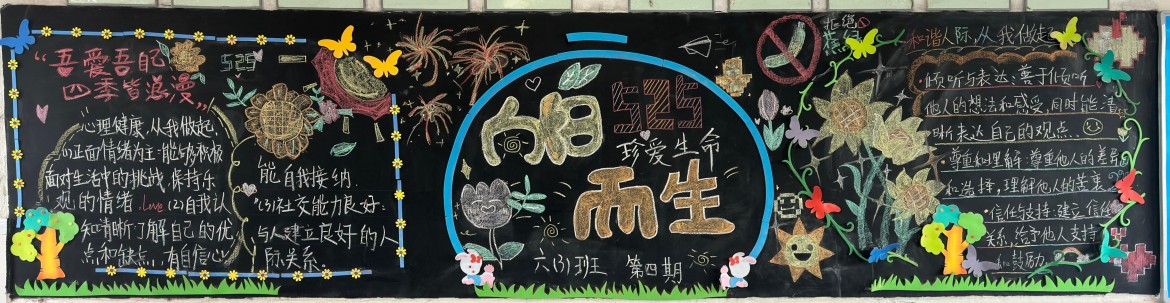 “吾爱吾自己
四季皆浪漫”
525
心理健康,从我做起.
(1)正面情绪为主:能够积极
面对生活中的挑战,保持乐
观的情绪.Love (2)自我认
知清晰了解自己的优
点和缺点,有自信心
能自我接纳.
(3)社交能力良好:
与人建立良好的人
际关系.
向阳
525
珍爱生命
而生
六(3)班 第四期
拒绝
和谐人际,从我做起
·倾听与表达:善于倾听
他人的想法和感受,同时能清
晰表达自己的观点.
·尊重和理解:尊重他人的差异
和选择,理解他人的苦衷
·信任与支持:建立信任
关系,给予他人支持
和鼓励